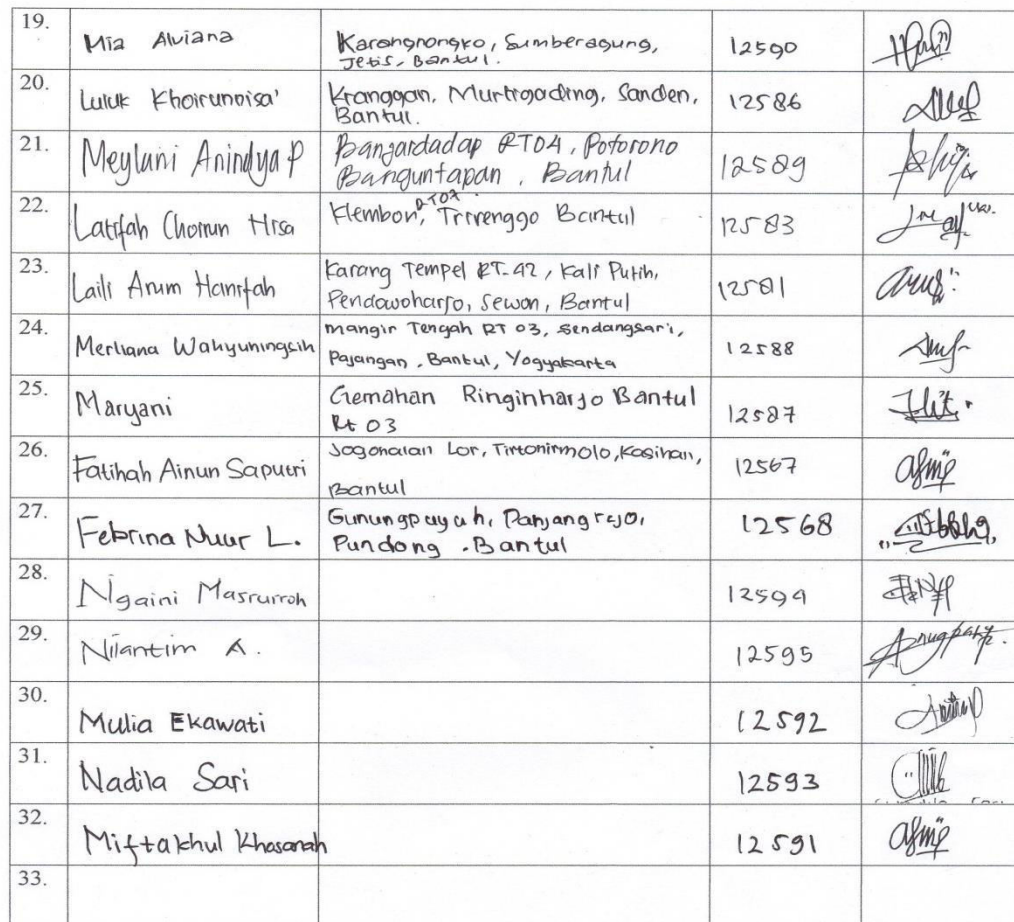 19.
Mia Alviana
Karangnongko, Sumberagung,
Jetis, Bantul.
12590
20.
Luluk Khoirunnisa'
Kranggan, Murtigading, Sanden,
Bantul.
12586
21.
Meylani Anindya P
Banjardadap RT04, Potorono
Banguntapan, Bantul
12589
22.
Latifah Choirun Nisa
Klembon, RT07 Trirenggo Bantul
12583
23.
Laili Arum Hanifah
Karang Tempel RT.42, Kali Putih,
Pendowoharjo, Sewon, Bantul
12581
24.
Merliana Wahyuningsih
Mangir Tengah RT 03, Sendangsari,
Pajangan, Bantul, Yogyakarta
12588
25.
Maryani
Gemahan Ringinharjo Bantul
Rt 03
12587
26.
Fatihah Ainun Saputri
Jogonalan Lor, Tirtonirmolo, Kasihan,
Bantul
12567
27.
Febrina Nuur L.
Gunungpuyuh, Panjangrejo,
Pundong, Bantul
12568
28.
Ngaini Masrurroh
12594
29.
Nilantim A.
12595
30.
Mulia Ekawati
12592
31.
Nadila Sari
12593
32.
Miftakhul Khasanah
12591
33.